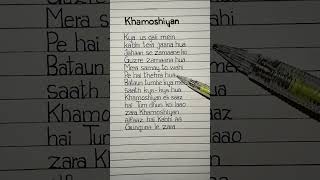 Khamoshiyan
Kya us gali mein
kabhi tera jaana hua
Jahaan se zamaane ko
Guzre zamaana hua
Mera samay to wahi
Pe hai thehra hua
Bataun tumhe kya mere
saath kya-kya hua
Khamoshiyan ek saaz
hai Tum dhun ko laao
zara Khamoshiyan
alfaaz hai Kabhi aa
Gunguna le zara